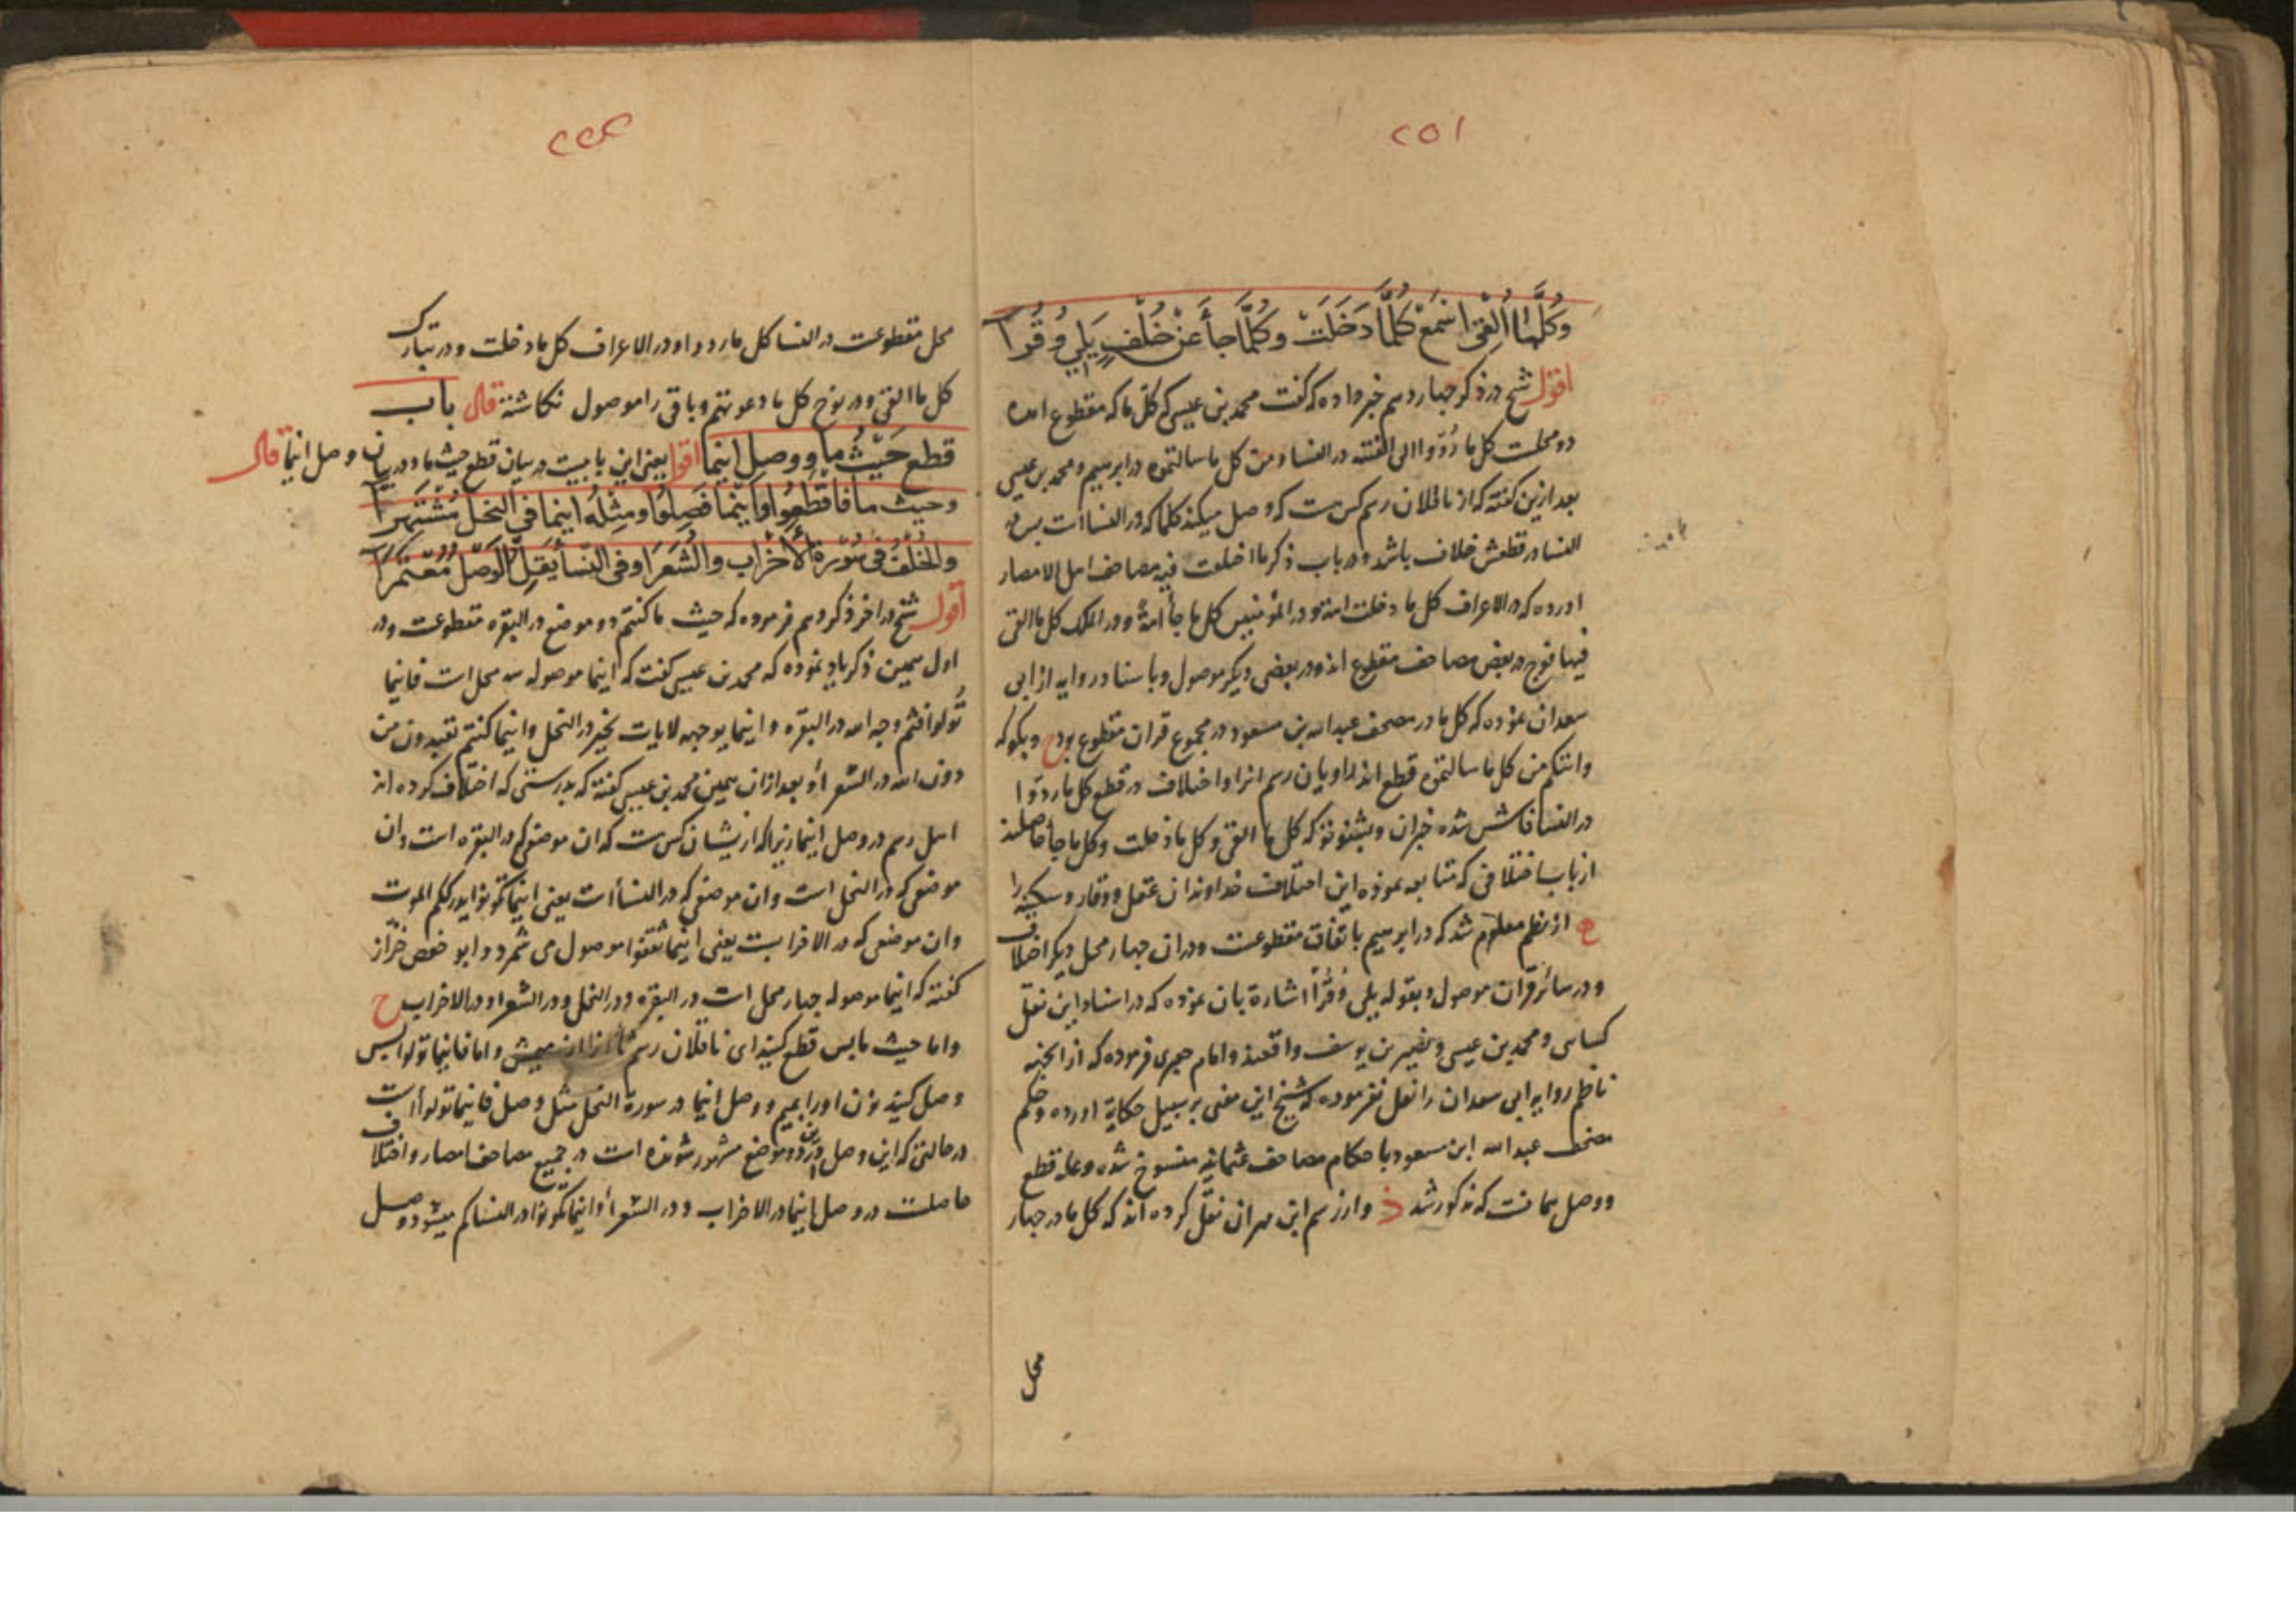 ٢٥١
وَكُلَّمَا أُلْقِيَ اسْمَعْ كُلَّمَا دَخَلَتْ وَكُلَّمَا جَاءَ عَنْ خُلْفٍ يَلِي وُقُرَا
اقول شيخ در ذكر چهاردهم خبر داده كه گفت محمد بن عيسى كه كل ما كه مقطوع امده
دو محلست كل ما ردّوا الى الفتنه در النسا و من كل ما سالتموه در ابرهيم و محمد بن عيسى
بعد ازين گفته كه از ناقلان رسم كس ست كه وصل ميكند كلما كه در النساات پس در
النسا در قطعش خلاف باشد و در باب ذكر ما اختلفت فيه مصاحف اهل الامصار
اورده كه در الاعراف كل ما دخلت امة و در المؤمنين كل ما جأ امة و در الملك كل ما القى
فيها فوج در بعض مصاحف مقطوع اند و در بعضى ديكر موصول و باسناد روايه از ابى
سعدان نموده كه كل ما در مصحف عبد الله بن مسعود در مجموع قران مقطوع بود ح و بگو كه
واتيكم من كل ما سالتموه قطع اند راويان رسم انرا و اختلاف در قطع كل ما ردّوا
در النسا فاش شده خبر ان و بشنو نوز كه كل ما القى و كل ما دخلت و كل ما جأ حاصلند
از باب اختلافى كه متابعه نموده اين اختلاف خداوندان عقل و وقار و سكينه را
ح از نظم معلوم شد كه در ابرهيم باتفاق مقطوعست و در ان چهار محل ديكر اختلاف
و در سائر قران موصول و بقوله يلى وُقُرًا اشارة بان نموده كه در اسناد اين نقل
كسائى و محمد بن عيسى و نصير بن يوسف واقعند و امام جعبرى فرموده كه از انجه
ناظم روايه ابى سعدان را نقل نفرموده كه شيخ اين معنى بر سبيل حكاية اورده و حكم
مصحف عبد الله ابن مسعود با حكام مصاحف عثمانيه منسوخ شده و عمله قطع
و وصل همانست كه مذكور شد و از رسم ابن مهران نقل كرده اند كه كل ما در چهار
محل
محل مقطوعست در النسا كل ما ردوا و در الاعراف كل ما دخلت و در تبارك
كل ما القى و در نوح كل ما دعوتهم و باقى را موصول نگاشته قال باب
قطع حَيْثُ ما و وصل اينما اقول يعنى اين بابيست در بيان قطع حيث ما و در بيان وصل اينما قال
وحيث ما فاقطعوا فاينما فصلوا ومثله اينما فى النحل مشتهرا
والخلف فى سورة الأحزاب والشعرا وفى النسأ يقل الوصل معتمرا
اقول شيخ در اخر ذكر دهم فرموده كه حيث ما كنتم دو موضع در البقره مقطوعست و در
اول همين ذكر ياد نموده كه محمد بن عيسى گفت كه اينما موصوله سه محل است فاينما
تُولّوا فثم وجه الله در البقره و اينما يوجهه لايات بخير در النحل و اينما كنتم تعبدون من
دون الله در الشعرا أو بعد از ان همين محمد بن عيسى گفته كه بدرستى كه اختلاف كرده اند
اهل رسم در وصل اينما زيرا كه از يشان كس ست كه ان موضعى كه در البقره است و ان
موضعى كه در النحل است و ان موضعى كه در النسأ است يعنى اينما تكونوا يدرككم الموت
وان موضعى كه در الاحزابست يعنى اينما ثقفوا موصول مى شمرد و ابو حفص خزّاز
گفته كه اينما موصوله چهار محل است در البقره و در النحل و در الشعرا و در الاحزاب ح
و اما حيث ما پس قطع كنيد اى ناقلان رسم و اما فاينما تولوا پس
وصل كنيد و وصل اينما در سورة النحل مثل وصل فاينما تولوا است
در حالتى كه اين وصل درين دو موضع مشهور شونده است در جميع مصاحف امصار و اختلاف
حاصلست در وصل اينما در الاحزاب و در الشعرأ و اينما تكونوا در النسا كم ميشود وصل